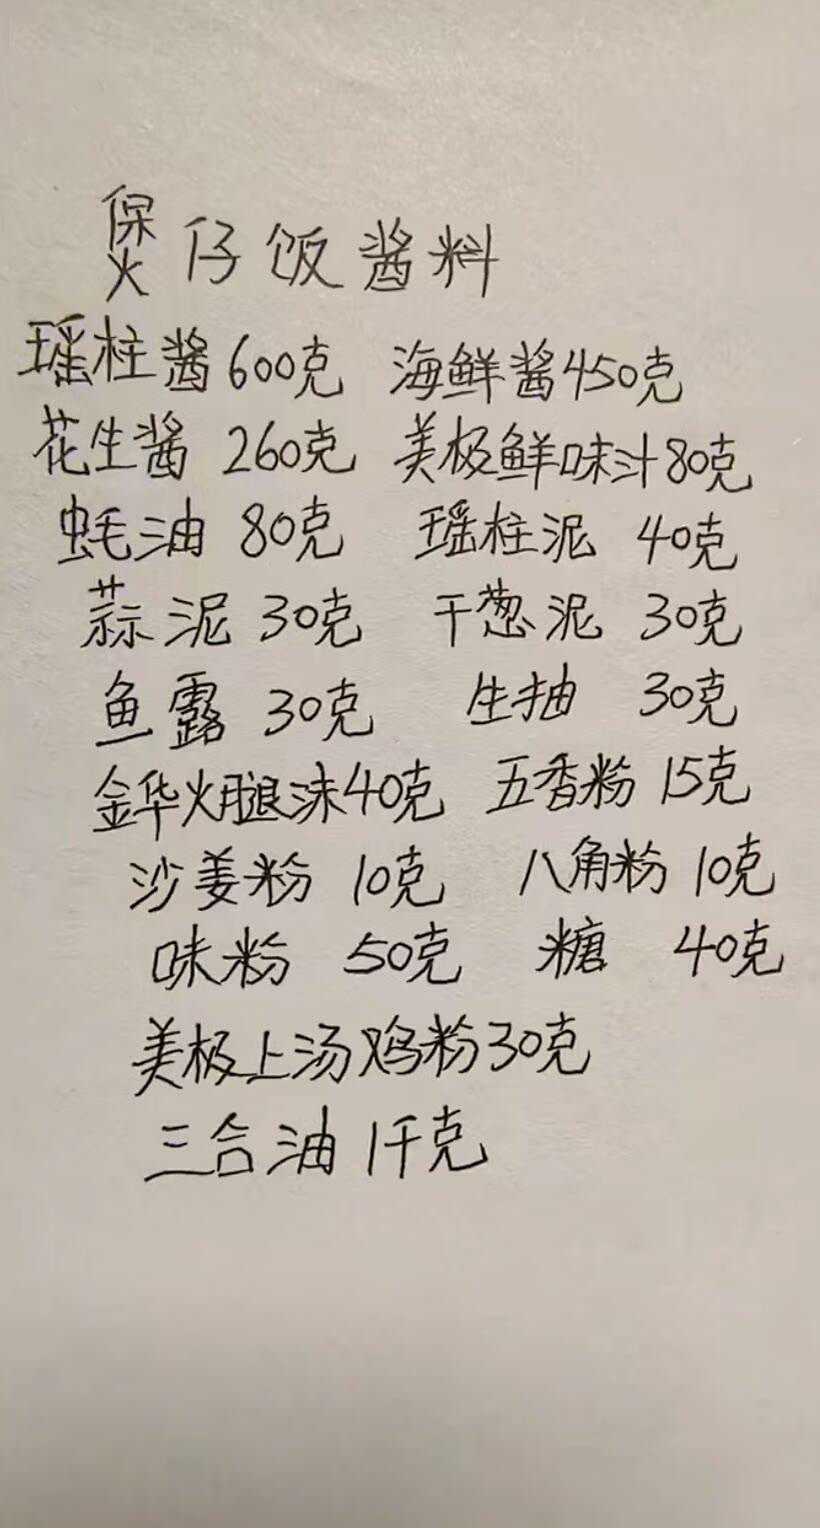 煲仔饭酱料
瑶柱酱600克 海鲜酱450克
花生酱 260克 美极鲜味汁80克
蚝油 80克 瑶柱泥 40克
蒜泥 30克 干葱泥 30克
鱼露 30克 生抽 30克
金华火腿沫40克 五香粉 15克
沙姜粉 10克 八角粉 10克
味粉 50克 糖 40克
美极上汤鸡粉30克
三合油 1千克